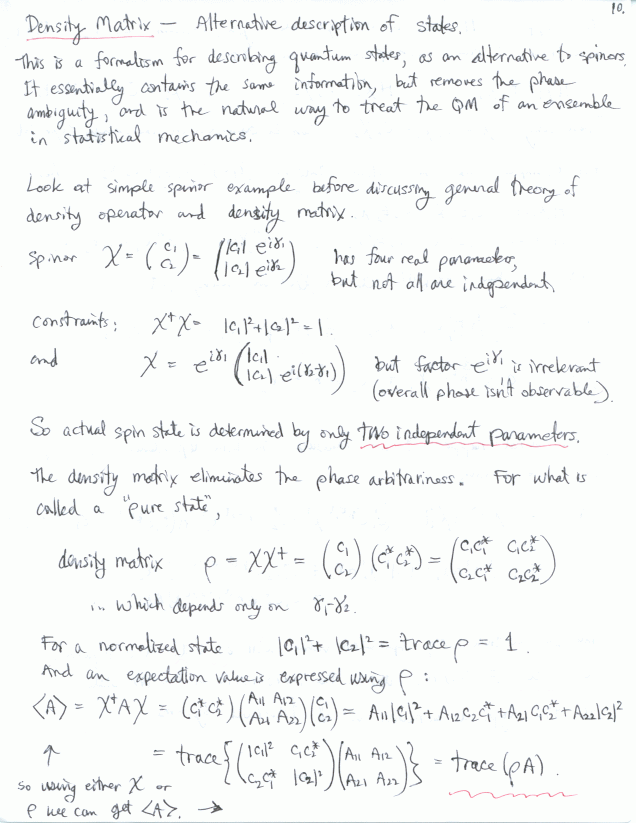 10.
Density Matrix — Alternative description of states.
This is a formalism for describing quantum states, as an alternative to spinors.
It essentially contains the same information, but removes the phase
ambiguity, and is the natural way to treat the QM of an ensemble
in statistical mechanics.
Look at simple spinor example before discussing general theory of
density operator and density matrix.
Spinor χ = (c₁ c₂) = (|c₁| e^{iγ₁} |c₂| e^{iγ₂}) has four real parameters,
but not all are independent.
Constraints: χ†χ = |c₁|²+|c₂|² = 1.
and χ = e^{iγ₁} (|c₁| |c₂| e^{i(γ₂-γ₁)}) but factor e^{iγ₁} is irrelevant
(overall phase isn't observable).
So actual spin state is determined by only two independent parameters.
The density matrix eliminates the phase arbitrariness. For what is
called a "pure state",
density matrix ρ = χχ† = (c₁ c₂) (c₁* c₂*) = (c₁c₁* c₁c₂* c₂c₁* c₂c₂*)
... which depends only on γ₁-γ₂.
For a normalized state |c₁|²+ |c₂|² = trace ρ = 1.
And an expectation value is expressed using ρ :
⟨A⟩ = χ†Aχ = (c₁* c₂*) (A₁₁ A₁₂ A₂₁ A₂₂) (c₁ c₂) = A₁₁|c₁|² + A₁₂c₂c₁* + A₂₁c₁c₂* + A₂₂|c₂|²
↑ = trace{(|c₁|² c₁c₂* c₂c₁* |c₂|²) (A₁₁ A₁₂ A₂₁ A₂₂)} = trace(ρA).
so using either χ or
ρ we can get ⟨A⟩. →